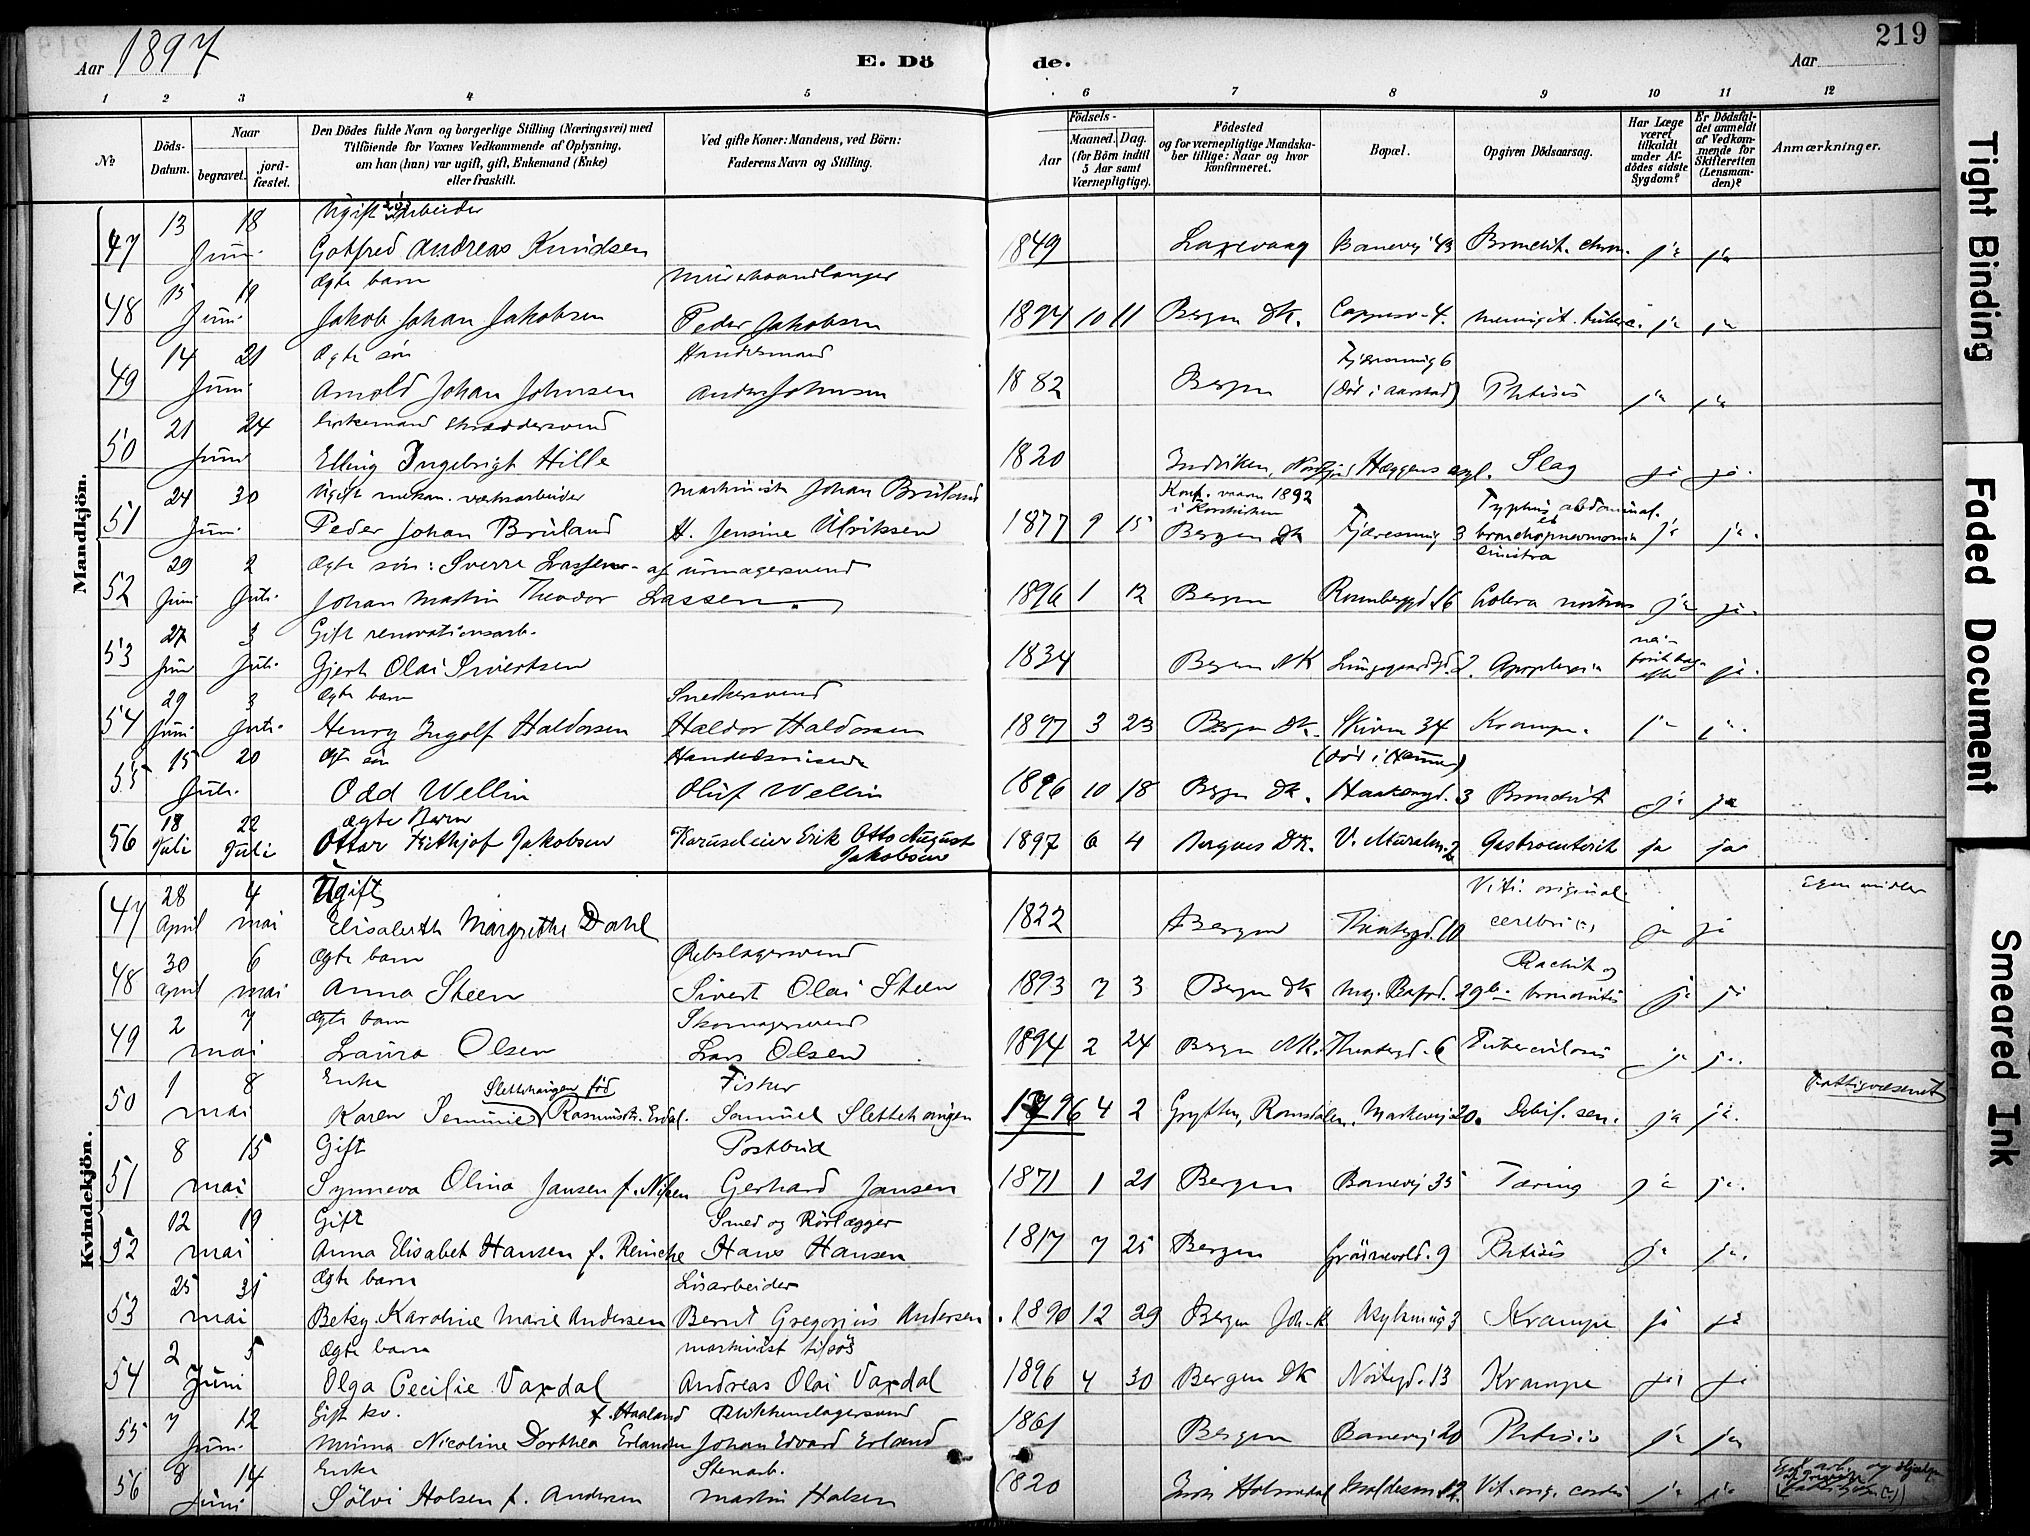 Aar 1897 E. Dö de. Aar 219
1 2 3 4 5 6 7 8 9 10 11 12
No
Döds-Datum.
Naar begravet. jord-fæstet.
Den Dödes fulde Navn og borgerlige Stilling (Næringsvei) med Tilföiende for Voxnes Vedkommende af Oplysning, om han (hun) var ugift, gift, Enkemand (Enke) eller fraskilt.
Ved gifte Koner: Mandens, ved Börn: Faderens Navn og Stilling.
Födsels- Aar Maaned. Dag. (for Börn indtil 5 Aar samt Værnepligtige).
Födested og for værnepligtige Mandska-ber tillige: Naar og hvor konfirmeret.
Bopæl.
Opgiven Dödsaarsag.
Har Læge været tilkaldt under Af-dödes sidste Sygdom?
Er Dödsfal-det anmeldt af Vedkom-mende for Skifteretten (Lensman-den)?
Anmærkninger.
Mandkjön.
47 13 18 Juni Ugift arbeider
Gotfred Andreas Knudsen 1849 Laxevaag Bonevej 43 Bronchit. chron. ja ja
48 15 19 Juni Ægte barn Murerhaandlanger
Jakob Johan Jakobsen Peder Jakobsen 1894 10 11 Bergen Dk. 4. ja ja
49 14 21 Juni Ægte søn
Arnold Johan Johnsen Anders Johnsen 1882 Bergen (død i Aarstad) Phtisis ja ja
50 21 24 Juni Enkemand skræddersvend
Elling Ingebrigt Hille 1820 Indviken, Nordfjord Hæggens asyl. Slag ja ja.
51 24 30 Juni Ugift mekan. værksarbeider Maskinist Johan Brüland
Peder Johan Brüland H. Jensine Ulriksen 1877 9 15 Konf. vaaren 1892 i Korskirken Bergen Dk 3 Typhus abdominal. et bronchopneumonia sinistra ja ja.
52 29 Juni 2 Juli Ægte søn: Sverre Lassen af urmagersvend
Johan Martin Theodor Lassen 1896 1 12 Bergen 16 Colera nostras ja ja.
53 27 Juni 3 Juli Gift renovationsarb.
Gjert Olai Sivertsen 1834 Bergen NK 2. Apoplexia nei- ja.
54 29 Juni 3 Juli Ægte barn Snedkersvend
Henry Ingolf Haldorsen Haldor Haldorsen 1897 3 23 Bergen Dk. Skiven 34 Krampe. ja ja.
55 15 20 Juli Ægte søn Handelsreisende
Odd Wellin Oluf Wellin 1896 10 18 Bergen Dk. Haakongd. 3 Bronchit ja ja
56 18 Juli 22 Juli ægte Barn
Ottar Frithjof Jakobsen Karuseleier Erik Otto August Jakobsen 1897 6 4 Bergens DK. V. Muralm. 2 Gastroenterit ja ja
Kvindekjön.
47 28 April 4 mai Ugift Egne midler
Elisabeth Margrethe Dahl 1822 Bergen 10 Viti. original. cerebri (?) ja ja
48 30 April 6 mai Ægte barn Rebslagersvend
Anna Steen Sivert Olai Steen 1893 7 3 Bergen Dk 29 Rachit og bronchitis ja ja
49 2 7 mai Ægte barn Skomagersvend
Laura Olsen Lars Olsen 1894 2 24 Bergen Nk. 6 Tuberculosis ja ja.
50 1 8 mai Enke Slettehaugen fød Fisker Fattigvæsenet
Karen Rasmusdtr. Samuel Slettehaugen 1796 4 2 Grytten, Romsdalen. Markevej 20. Debil. sen. ja ja.
51 8 15 mai Gift Postbud
Synneva Olina Jansen f. Nilsen Gerhard Jansen 1871 1 21 Bergen Bonevej 35 Tæring ja ja.
52 12 19 mai Gift Smed og Rörlægger
Anna Elisabet Hansen f. Reincke Hans Hansen 1817 7 25 Bergen 9 Phtisis ja ja.
53 25 31 mai Ægte barn Løsarbeider
Betsy Karoline Marie Andersen Bernt Gregorius Andersen 1890 12 29 Bergen Joh-K Asylsmug 3 Krampe ja ja
54 2 5 Juni Ægte barn maskinist tilsøs
Olga Cecilie Vaxdal Andreas Olai Vaxdal 1896 4 30 Bergen Dk Nøstegd. 13 Krampe ja ja
55 7 12 Juni Gift kv. f. Haaland Blikkenslagersvend
Minna Nicoline Dorthea Erland Johan Edvard Erland 1861 Bergen Bonevej 20 Phtisis ja ja
56 8 14 Juni Enke Stenarb.
Sölvi Holsen f. Andersen Martin Holsen 1820 12. Vit. org. cordis ja ja
Tight Binding
Faded Document
Smeared Ink